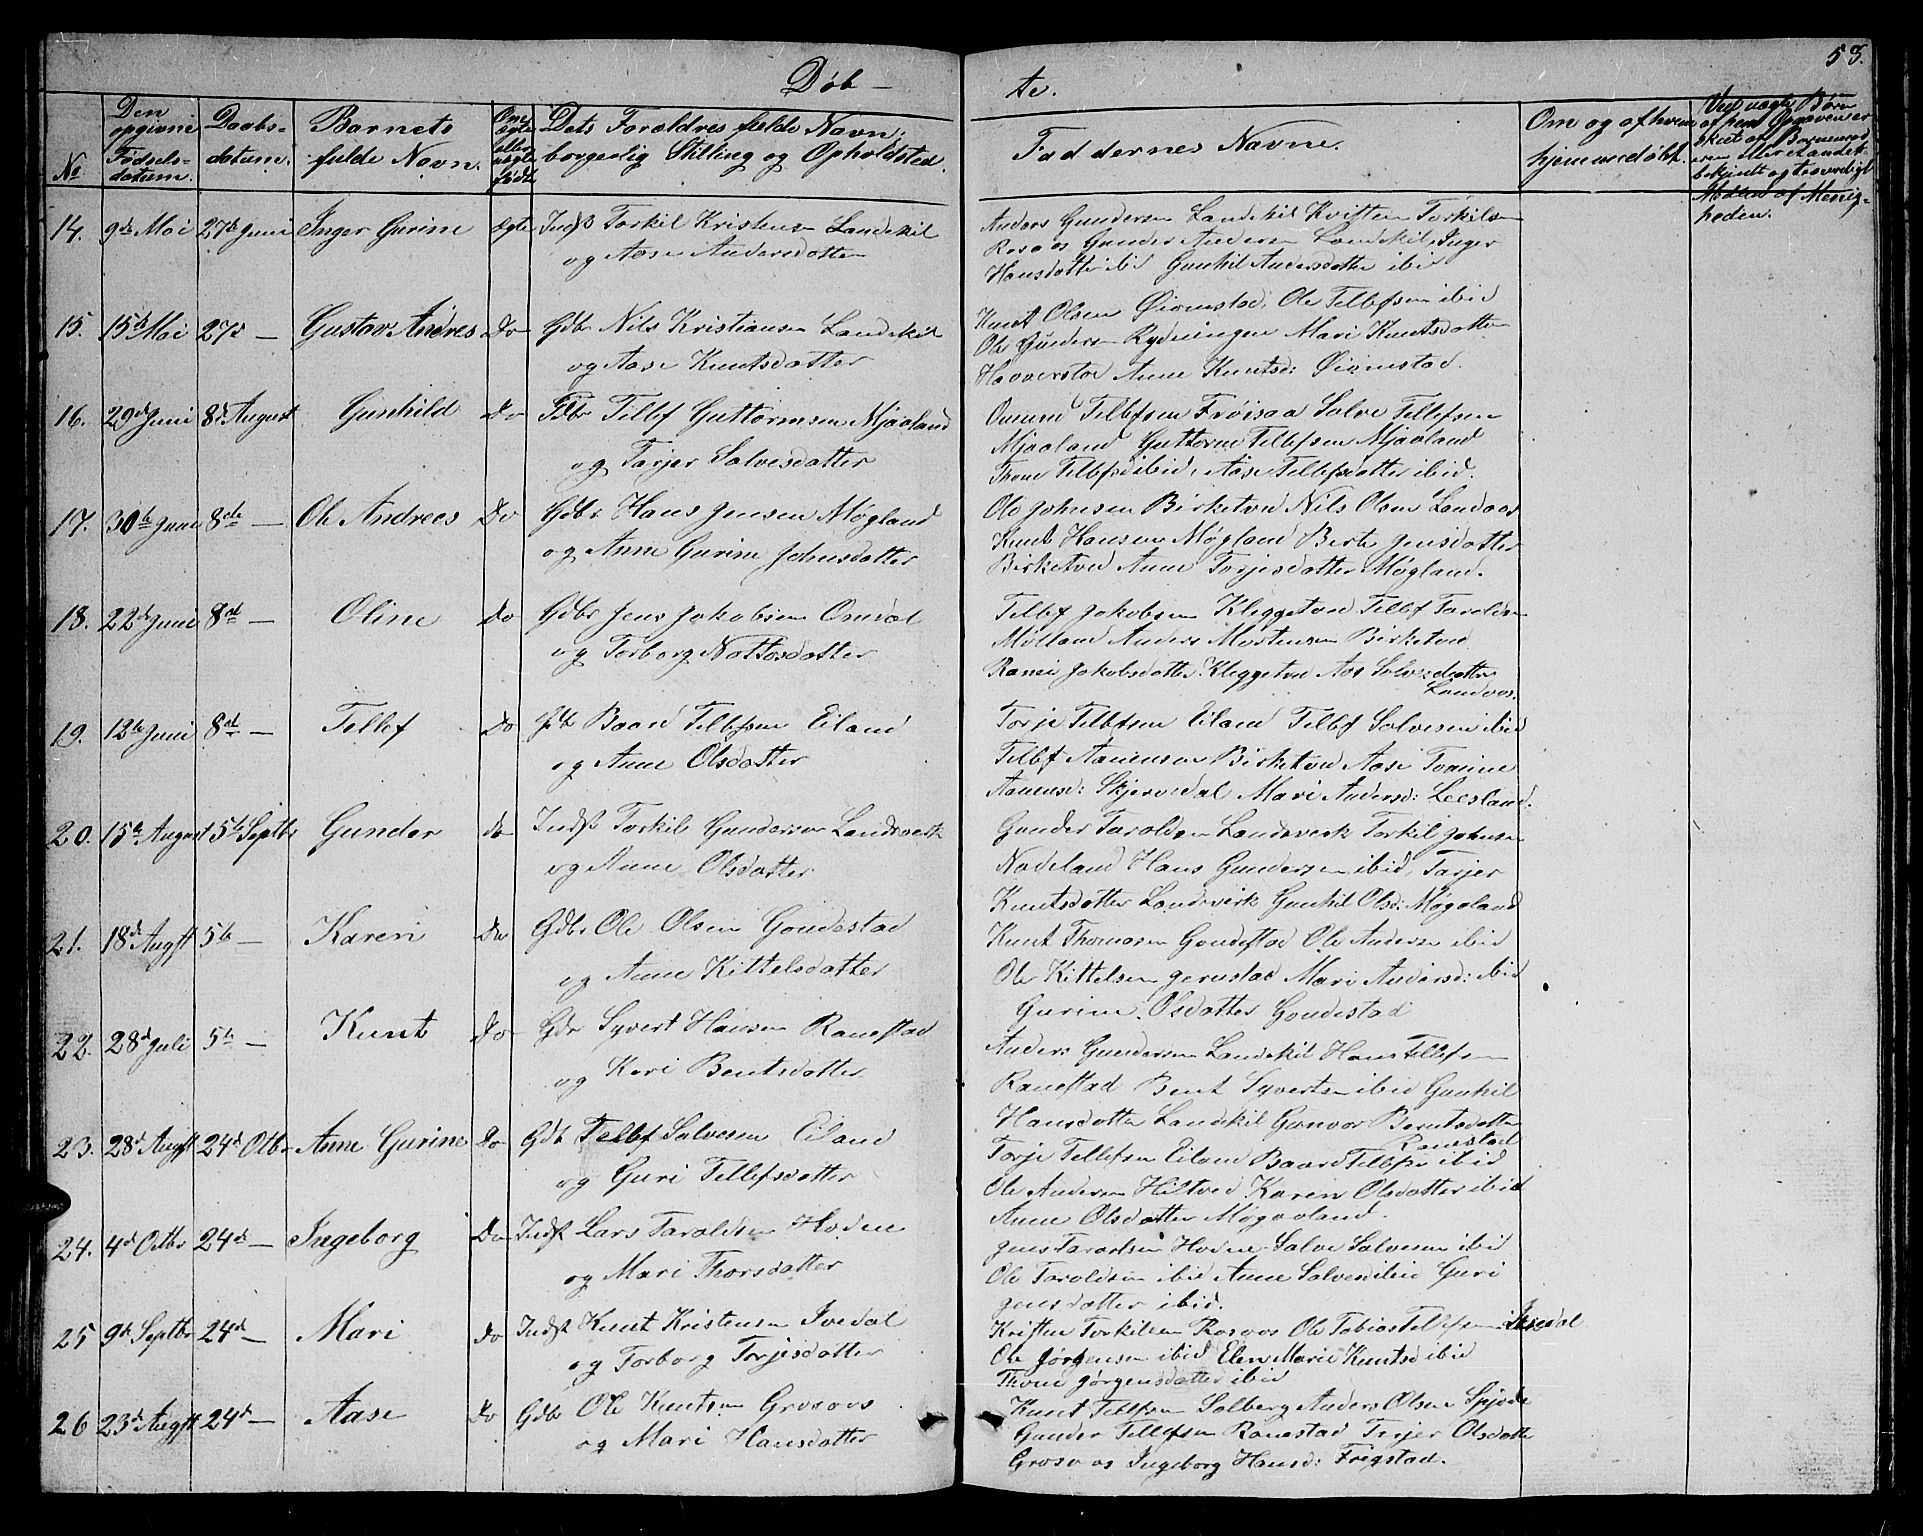 53.
Døb-
te.
No
Den opgivne Fødsels-datum.
Daabs-datum.
Barnets fulde Navn.
Om ægte eller uægte født
Dets Forældres fulde Navn, borgerlig Stilling og Opholdsted.
Faddernes Navne.
Om og af hvem hjemmedøbt.
Ved uægte Børn
14. 9de Mai 27de Juni Inger Gurine Ægte Indst Torkil Kristensen Landskil
og Aase Andersdatter
Anders Gundersen Landskil Kristen Torkilsen
Rosaas Gunder Andersen Landskil, Inger
Hansdatter ibid Gunhil Andersdatter ibid
15. 15de Mai 27d — Gustav Andres Do Gdbr Nils Kristiansen Landskil
og Aase Knutsdatter
Knut Olsen Øiomstad, Ole Tellefsen ibid
Ole Gundersen Rydningen Mari Knutsdatter
Haaverstad Anne Knutsd: Øiomstad.
16. 29de Juni 8de August Gunhild Do Gdbr Tellef Guttormsen Mjaaland
og Tarjer Salvesdatter
Omund Tellefsen Frøisaa Salve Tellefsen
Mjaaland Guttorm Tellefsen Mjaaland
Thone Tellefsd ibid, Aase Tellefsdatter ibid.
17. 30te Juni 8de — Ole Andreas Do Gdbr Hans Jensen Møgland
og Anne Gurine Johnsdatter
Ole Johnsen Birketved Nils Olsen Landaas
Knut Hansen Møgland Berte Jensdatter
Birketved Anne Torjesdatter Møgland.
18. 22de Juni 8de — Oline Do Gdbr Jens Jakobsen Omdal
og Torborg Nottosdatter
Tellef Jakobsen Kleggetved Tellef Taraldsen
Mølland Anders Mortensen Birketved
Rannei Jakobsdatter Kleggetved Aas Salvesdatter
Landaas.
19. 12te Juni 8de — Tellef Do Gdb Baard Tellefsen Eiland
og Anne Olsdatter
Torje Tellefsen Eiland Tellef Salvesen ibid
Tellef Aanensen Birketved Aase Tomine
Aanensd: Skjervedal Mari Andersd: Leesland.
20. 15de August 5te Septbr Gunder do Indst Torkil Gundersen Landsverk
og Anne Olsdatter
Gunder Taraldsen Landsverk Torkil Johnsen
Nodeland Hans Gundersen ibid, Tarjer
Knutsdatter Landsverk Gunhil Olsd: Møgaland
21. 18de Augst 5te — Karen Do Gdbr Ole Olsen Gondestad
og Anne Kittelsdatter
Knut Thomasen Gondestad Ole Andersen ibid
Ole Kittelsen Jernstad Mari Andersd: ibid
Gurine Olsdatter Gondestad
22. 28de Juli 5te — Knut Do Gdr Syvert Hansen Ranestad
og Kari Bentsdatter
Anders Gundersen Landskil Hans Tellefsen
Ranestad Bent Syvertsen ibid Gunhil
Hansdatter Landskil Gunvor Berntsdatter
Ranestad
23. 28de Augst 24de Otbr Anne Gurine Do Gdb Tellef Salvesen Eiland
og Guri Tellefsdatter
Torje Tellefsen Eiland Baard Tellefsen ibid
Ole Andersen Hiltved Karen Olsdatter ibid
Anne Olsdatter Møgaaland.
24. 4de Octbr 24de — Ingeborg Do Indst Lars Taraldsen Hodne
og Mari Thorsdatter
Jens Taraldsen Hodne Salve Salvesen ibid
Ole Taraldsen ibid Anne Salvesd ibid Guri
Jensdatter ibid.
25 9de Septbr 24de — Mari Do Indst Knut Kristensen Ivedal
og Torborg Torjesdatter
Kristen Torkilsen Rosaas Ole Tobias Tellefsen Ivedal
Ole Jørgensen ibid Elen Marie Knutsd ibid
Thone Jørgensdatter ibid
26 23de Augst 24de — Aase Do Gdbr Ole Knutsen Grosaas
og Mari Hansdatter
Knut Tellefsen Solberg Anders Olsen Spjode
Gunder Tellefsen Ranestad Torjer Olsdatter
Grosaas Ingeborg Hansd: Fregstad.